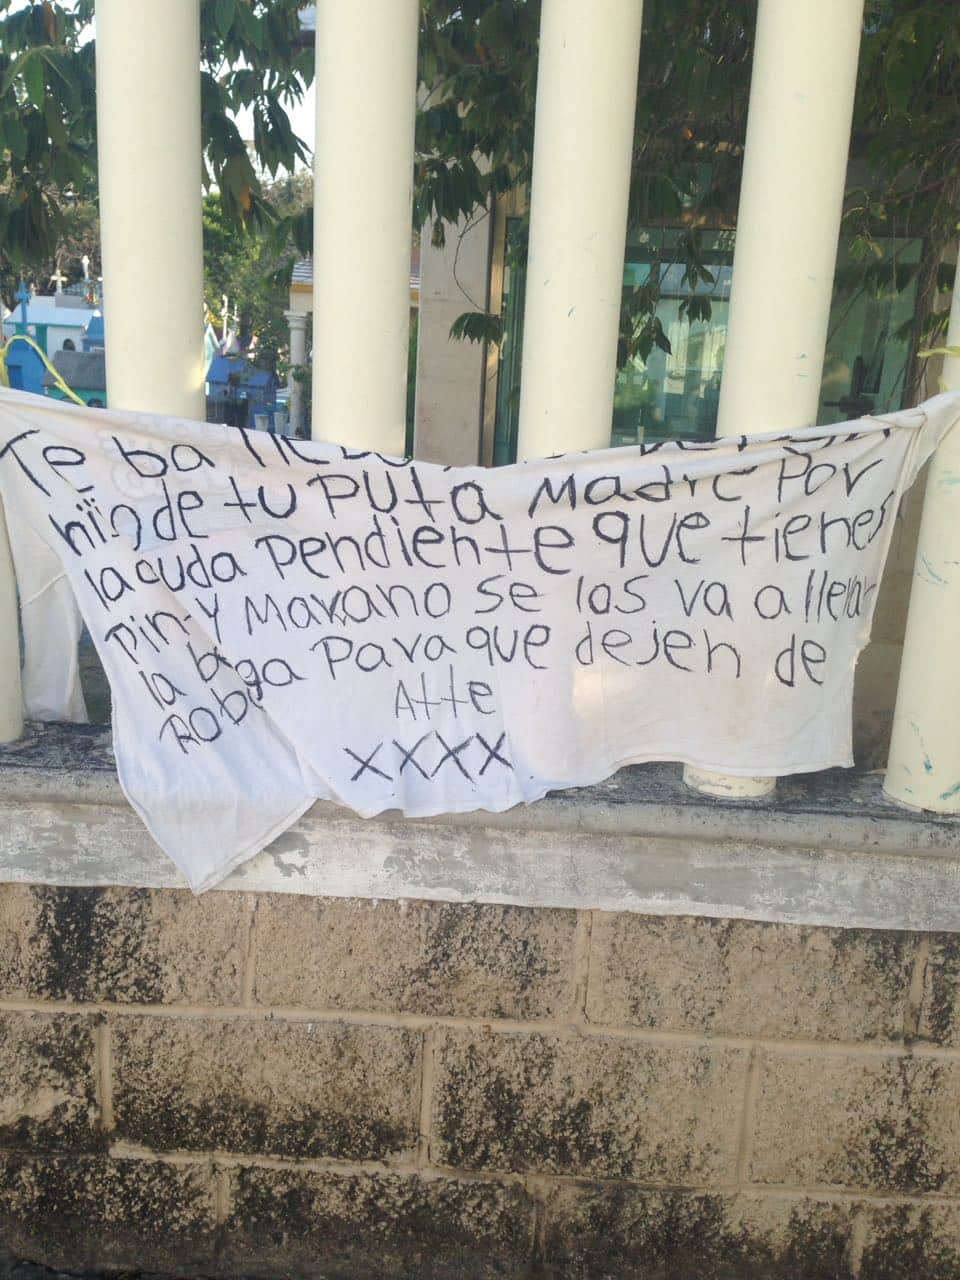 Te ba
hijode tu PUtA Madre Por
la cuda Pendiente que tienes
Pin-y Maxano se los va a llevar
la berga Para que dejen de
Robar
Atte
XXXX